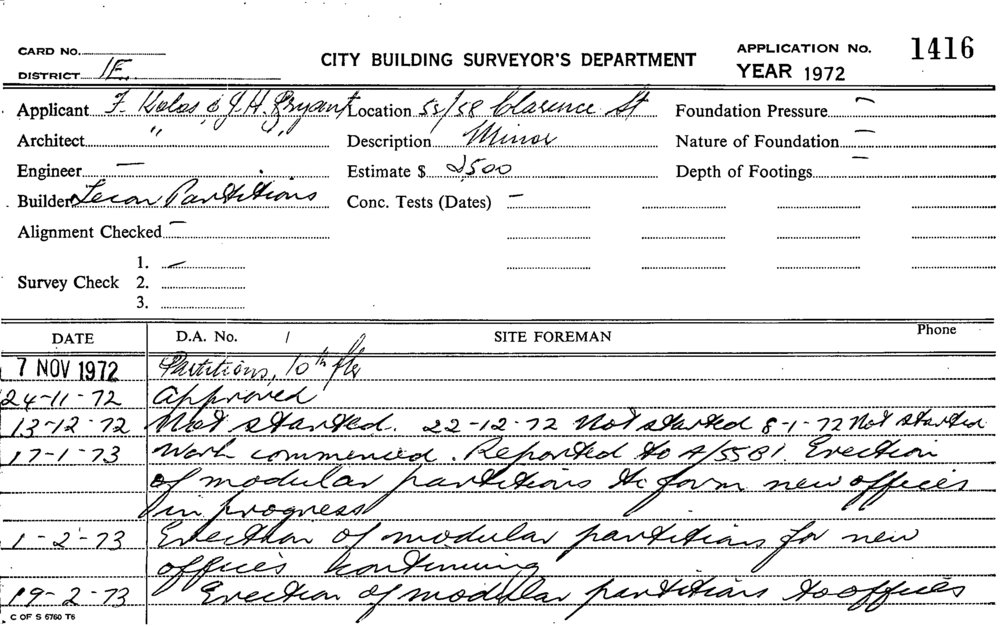 CARD No.
DISTRICT 1E.
CITY BUILDING SURVEYOR'S DEPARTMENT
APPLICATION No. 1416
YEAR 1972
Applicant F. Kolos & J. H. Bryant Location 52/58 Clarence St Foundation Pressure –
Architect " " Description Minor Nature of Foundation –
Engineer — Estimate $ 2,500 Depth of Footings –
Builder Lecon Partitions Conc. Tests (Dates) –
Alignment Checked –
1. –
Survey Check 2.
3.
DATE D.A. No. / SITE FOREMAN Phone
7 NOV 1972 Partitions, 10th flr
24-11-72 Approved
13-12-72 Not started. 22-12-72 Not started 8-1-72 Not started
17-1-73 Work commenced. Reported to A/SSBI. Erection
of modular partitions to form new offices
in progress
1-2-73 Erection of modular partitions for new
offices continuing
19-2-73 Erection of modular partitions to offices
C OF S 6760 T6